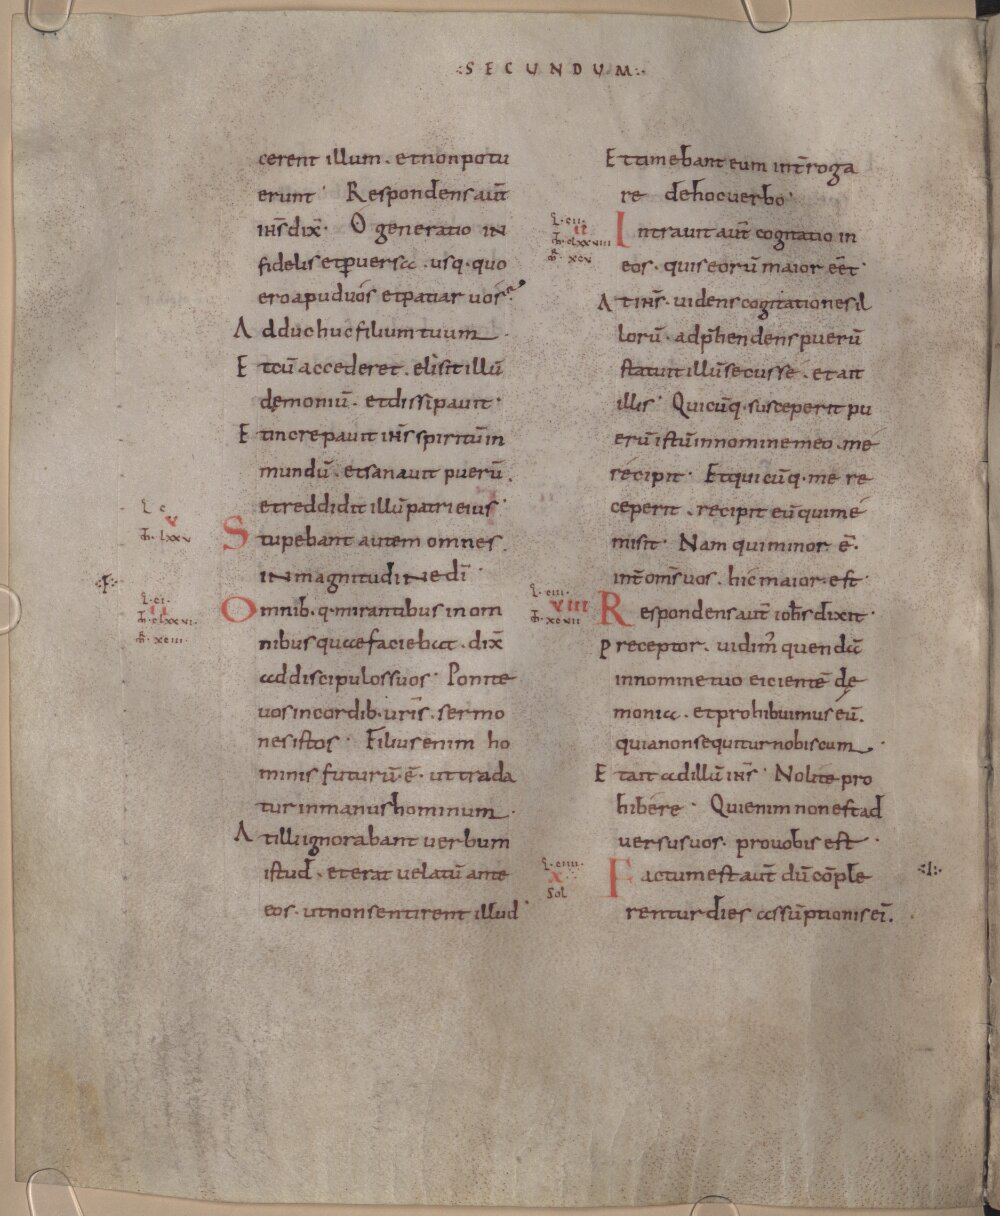 :SECUNDUM:
cerent illum . et non potu
erunt · Respondens aut̄
ih̄s dix̄ · O generatio in
fidelis et ꝑuersa . usq · quo
ero apud uós et patiar uós?
Adduc huc filium tuum
Et cū accederet . elisit illū
demoniū . et dissipauit ·
Et increpauit ih̄s spiritū in
mundū . et sanauit puerū .
et reddidit illū patri eius ·
L c
v
M̄ · lxxv
Stupebant autem omnes .
in magnitudine dī ·
·F·
L · ci ·
ii
M̄ · clxxvi ·
M̄r · xciii ·
Omnib · q · mirantibus in om
nibus quae faciebat . dix̄
ad discipulos suos · Ponite
uos in cordib · ur̄is . sermo
nes istos · Filius enim ho
minis futurū · ē · ut trada
tur in manus hominum .
At illi ignorabant uerbum
istud . et erat uelatū ante
eos · ut non sentirent illud ·
Et timebant eum int̄roga
re de hoc uerbo ·
L · cii ·
ii
M̄ · clxxviii
M̄r · xcv
Intrauit aut̄ cogitatio in
eos · quis eorū maior eēt ·
At ih̄s · uidens cogitationes il
lorū · adp̄hendens puerū
statuit illū secus se . et ait
illis · Quicūq · susceperit pu
erū istū in nomine meo . mé
récipit · Et quicūq · me re
ceperit . recipit eū qui mé
misit · Nam qui minor · ē ·
int̄ om̄s uos . hic maior est ·
L · ciii ·
viii
M̄r · xcvii
Respondens aut̄ ioh̄s dixit ·
Preceptor . uidim̄ quendā
in nomine tuo eicientē dę
monia . et prohibuimus eū .
quia non sequitur nobiscum ·
Et ait ad illū ih̄s · Nolite pro
hibére · Qui enim non est ad
uersus uos · pro uobis est ·
L · ciiii ·
x
Sol
Factum est aut̄ dū cōple
rentur dies assūptionis eī .
·I·